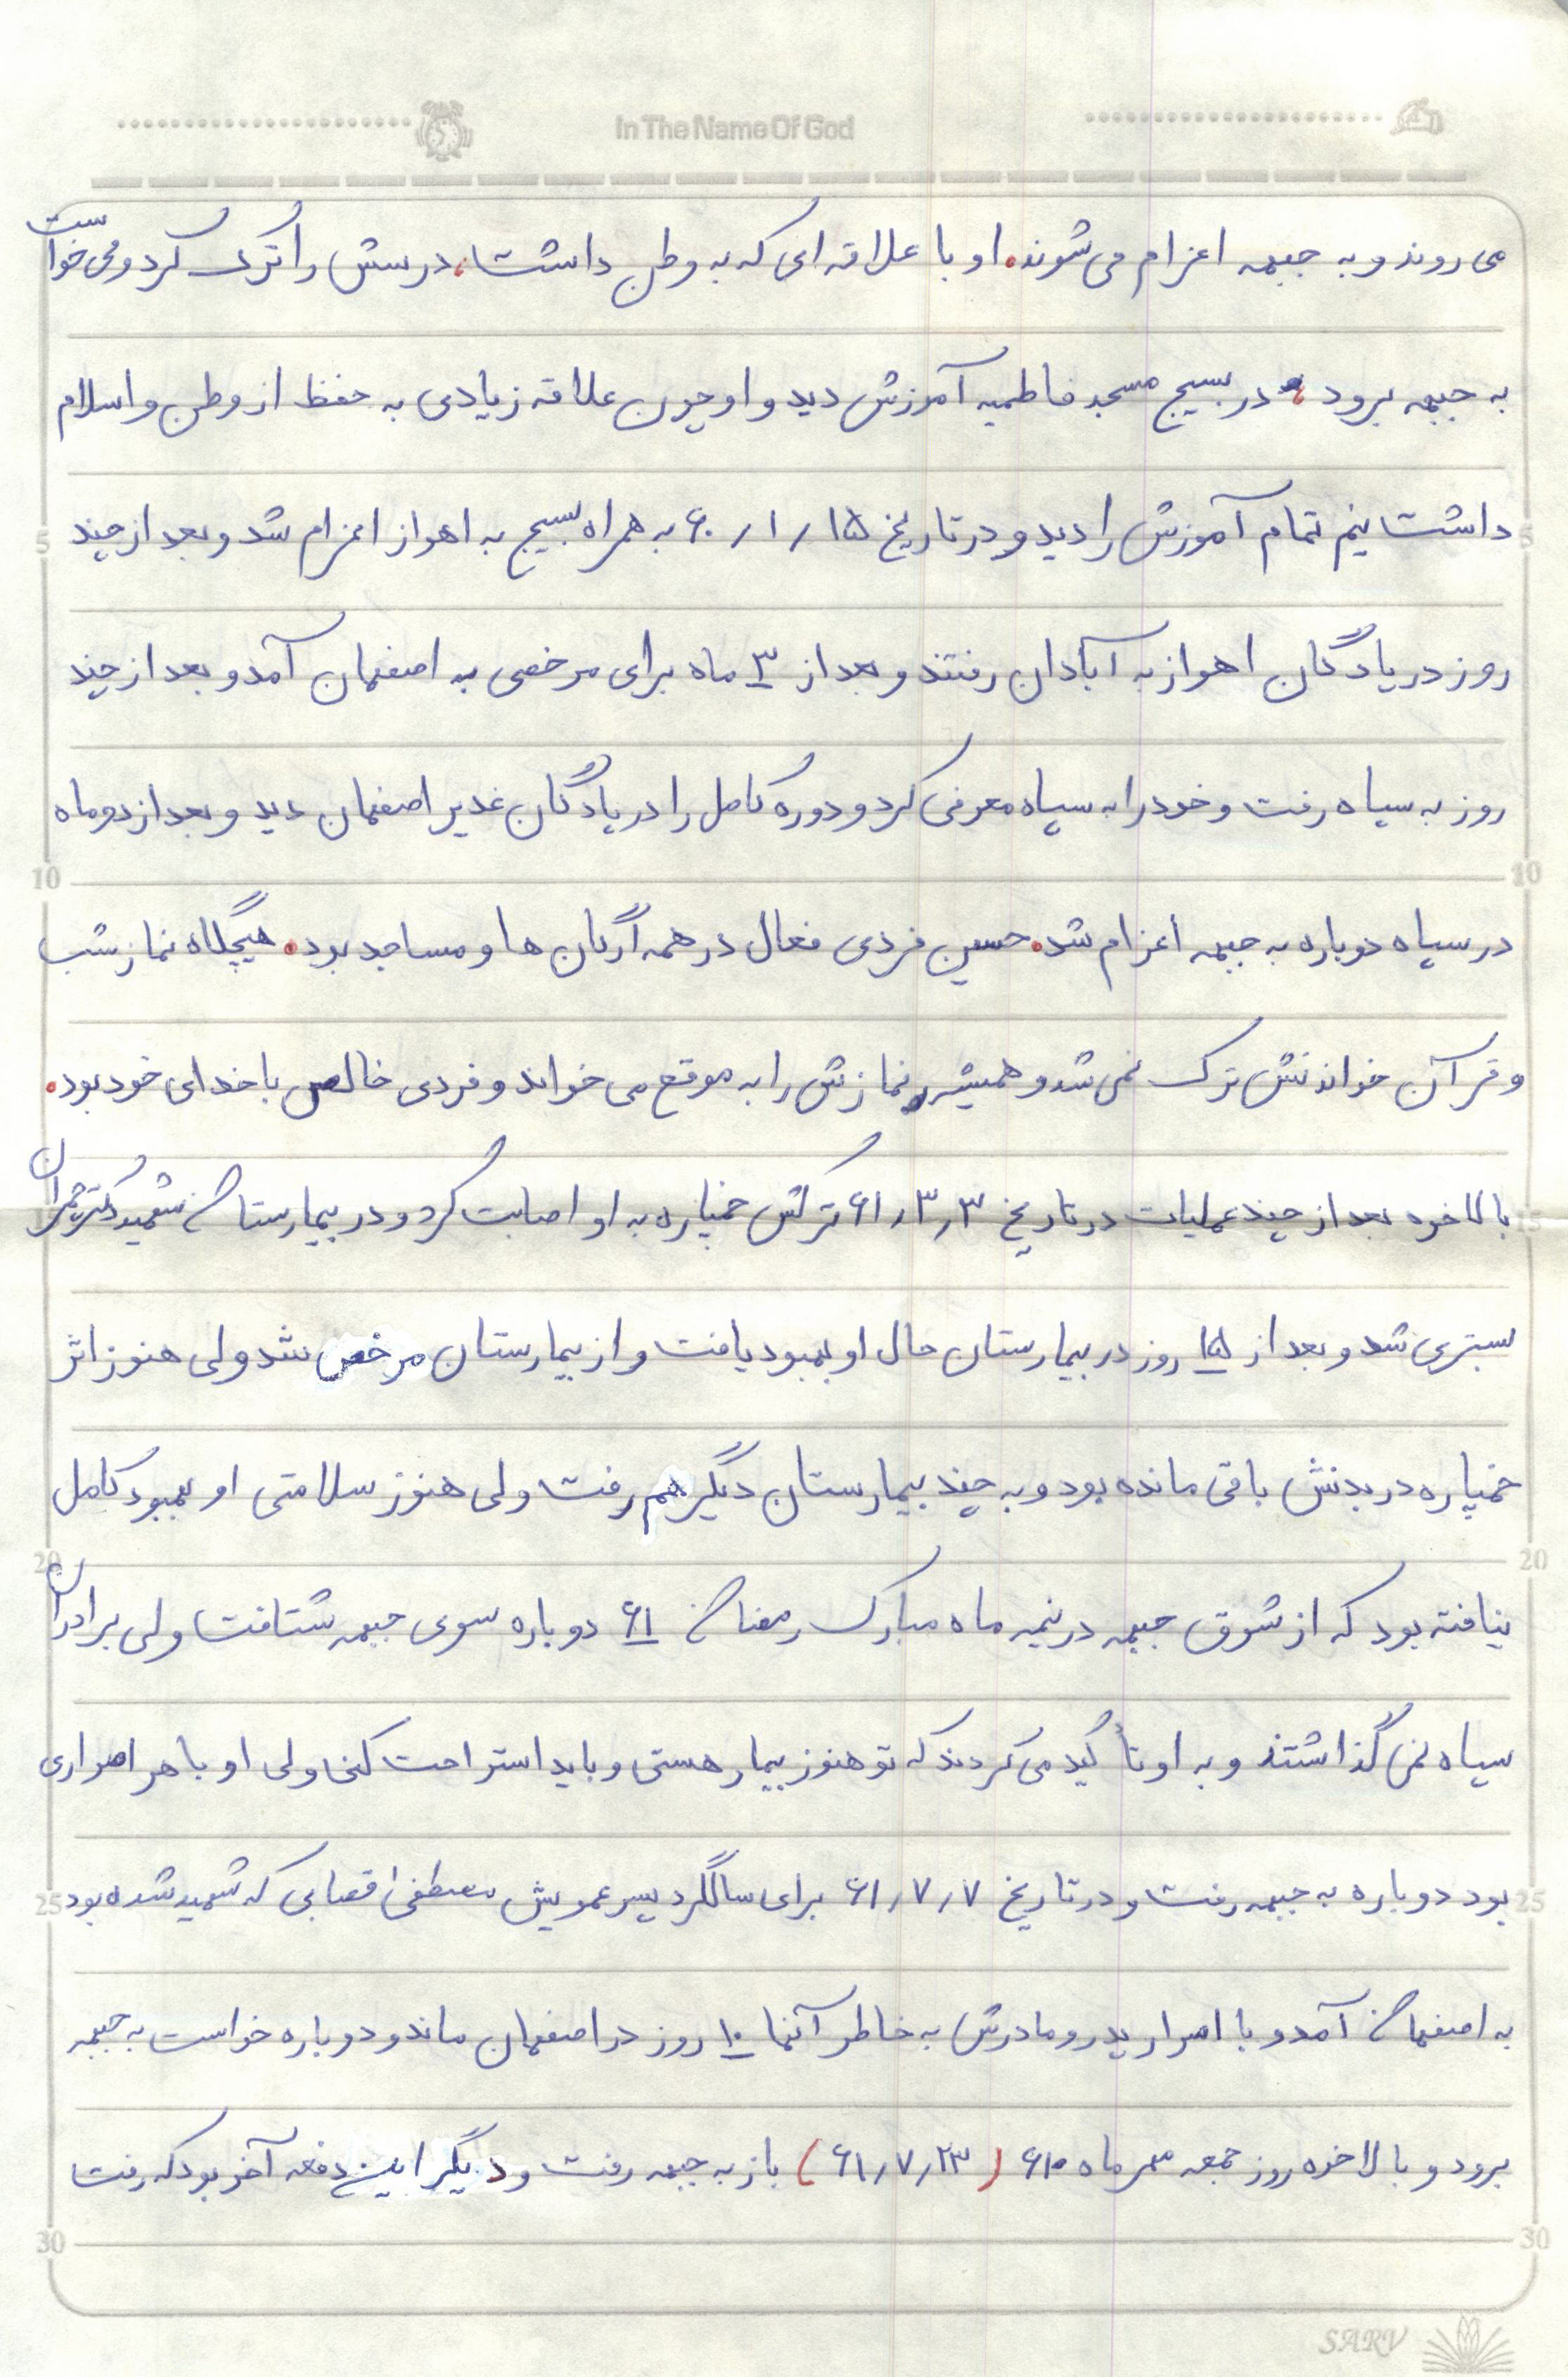 In The Name Of God
می روند و به جبهه اعزام می شوند. او با علاقه ای که به وطن داشت، درسش را ترک کرد و می خواست
به جبهه برود در بسیج مسجد فاطمیه آموزش دید و او چون علاقه زیادی به حفظ از وطن و اسلام
داشت نیم تمام آموزش را دید و در تاریخ ۱۵ / ۱ / ۶۰ به همراه بسیج به اهواز اعزام شد و بعد از چند
روز در پادگان اهواز به آبادان رفتند و بعد از ۳ ماه برای مرخصی به اصفهان آمد و بعد از چند
روز به سپاه رفت و خود را به سپاه معرفی کرد و دوره کامل را در پادگان غدیر اصفهان دید و بعد از دو ماه
در سپاه دوباره به جبهه اعزام شد. حسین فردی فعال در همه ارگان ها و مساجد بود. هیچگاه نماز شب
و قرآن خواندنش ترک نمی شد و همیشه نمازش را به موقع می خواند و فردی خالص با خدای خود بود.
بالاخره بعد از چند عملیات در تاریخ ۳ / ۳ / ۶۱ ترکش خمپاره به او اصابت کرد و در بیمارستان شهید دکتر چمران
بستری شد و بعد از ۱۵ روز در بیمارستان حال او بهبود یافت و از بیمارستان مرخص شد ولی هنوز اثر
خمپاره در بدنش باقی مانده بود و به چند بیمارستان دیگر هم رفت ولی هنوز سلامتی او بهبود کامل
نیافته بود که از شوق جبهه در نیمه ماه مبارک رمضان ۶۱ دوباره سوی جبهه شتافت ولی برادران
سپاه نمی گذاشتند و به او تأکید می کردند که تو هنوز بیمار هستی و باید استراحت کنی ولی او با هر اصراری
بود دوباره به جبهه رفت و در تاریخ ۷ / ۷ / ۶۱ برای سالگرد پسر عمویش مصطفی قصابی که شهید شده بود
به اصفهان آمد و با اصرار پدر و مادرش به خاطر آنها ۱۰ روز در اصفهان ماند و دوباره خواست به جبهه
برود و بالاخره روز جمعه مهر ماه ۶۱ (۲۳ / ۷ / ۶۱) باز به جبهه رفت و دیگر این دفعه آخر بود که رفت
5
5
10
10
15
20
20
25
25
30
30
SARV